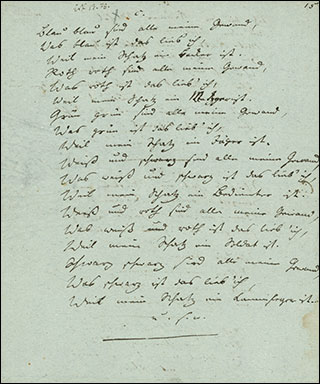 15
Blau blau sind alle meine Gewand,
Was blau ist das lieb ich,
Weil mein Schatz ein ist.
Roth roth sind alle meine Gewand,
Was roth ist das lieb ich,
Weil mein Schatz ein Metzger ist.
Grün grün sind alle meine Gewand
Was grün ist das lieb ich,
Weil mein Schatz ein Jäger ist.
Weiß und schwarz sind alle meine Gewand
Was weiß und schwarz ist das lieb ich,
Weil mein Schatz ein Bedienter ist.
Weiß und roth sind alle meine Gewand,
Was weiß und roth ist das lieb ich,
Weil mein Schatz ein Soldat ist.
Schwarz schwarz sind alle meine Gewand
Was schwarz ist das lieb ich,
Weil mein Schatz ein Kaminfeger ist.
u. s. w.